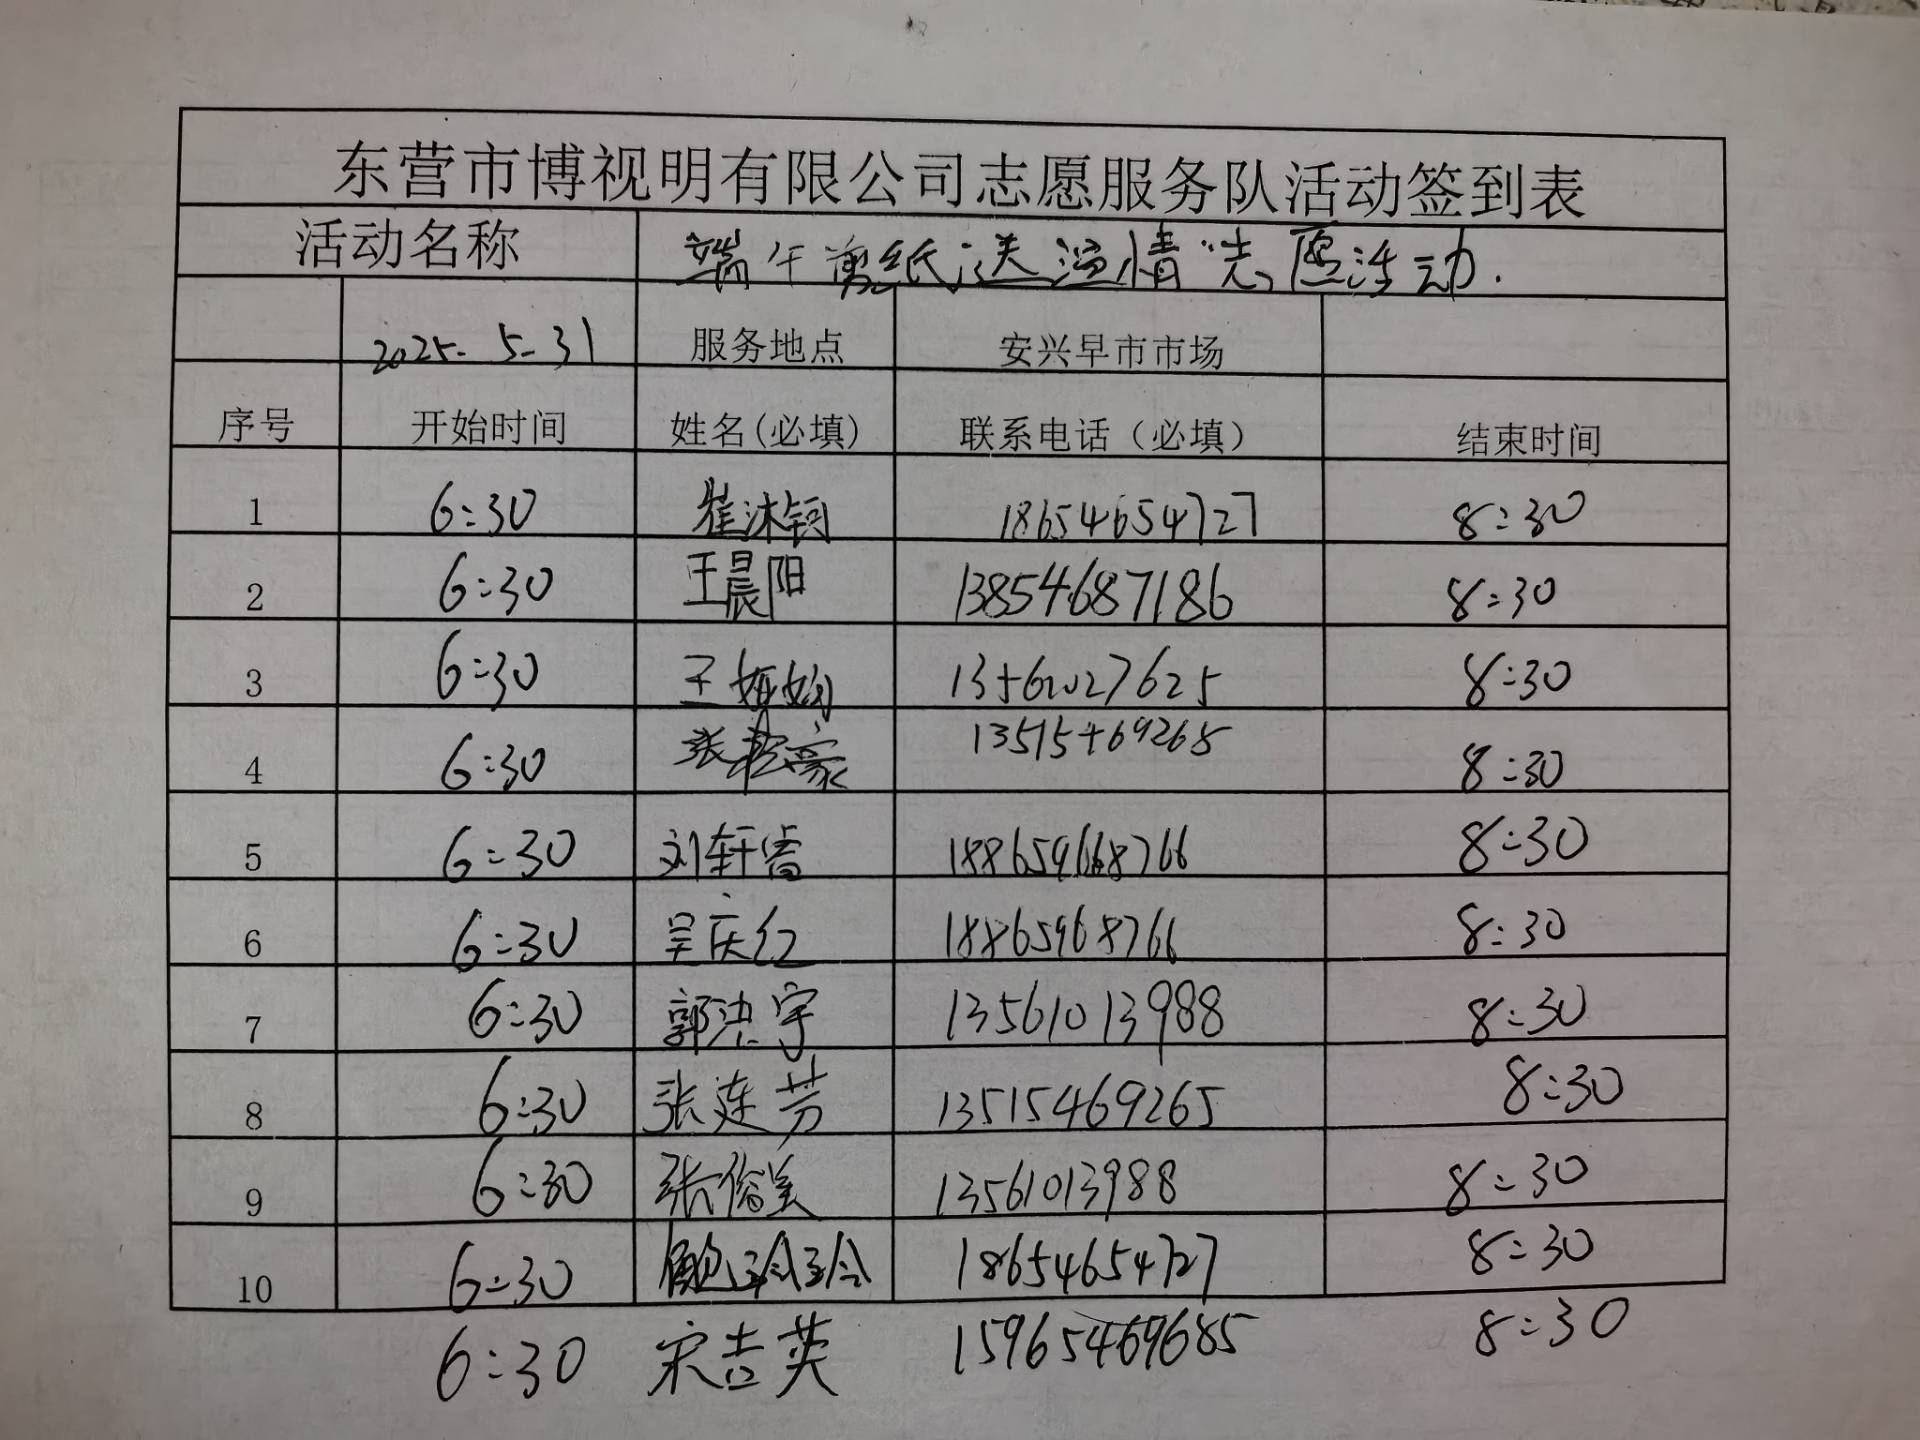 东营市博视明有限公司志愿服务队活动签到表
活动名称 端午剪纸送温情志愿活动.
2025-5-31 服务地点 安兴早市市场
序号 开始时间 姓名(必填) 联系电话（必填） 结束时间
1 6:30 崔沐钶 18654654727 8:30
2 6:30 王晨阳 13854687186 8:30
3 6:30 王 13561027625 8:30
4 6:30 张 豪 13515469265 8:30
5 6:30 刘轩睿 8:30
6 6:30 吴庆红 18865968766 8:30
7 6:30 郭洪宇 13561013988 8:30
8 6:30 张连芳 13515469265 8:30
9 6:30 张俊美 13561013988 8:30
10 6:30 鲍玲玲 18654654727 8:30
6:30 宋吉英 15965469685 8:30